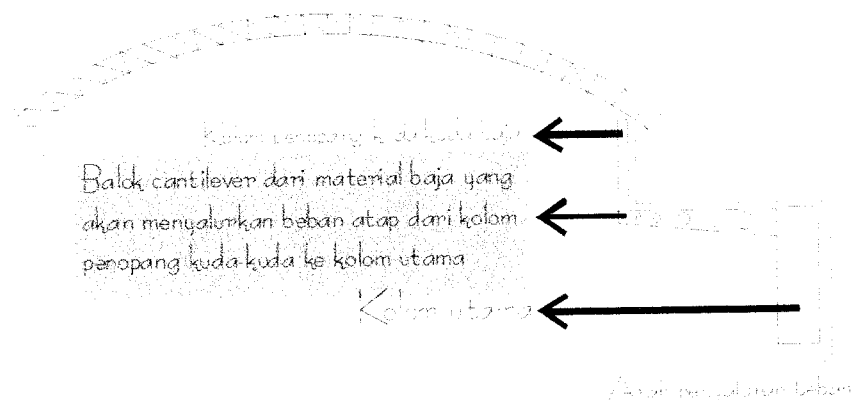 Kolom penopang kuda-kuda baja
Balok cantilever dari material baja yang
akan menyalurkan beban atap dari kolom
penopang kuda-kuda ke kolom utama
Kolom utama
Arah penyaluran beban